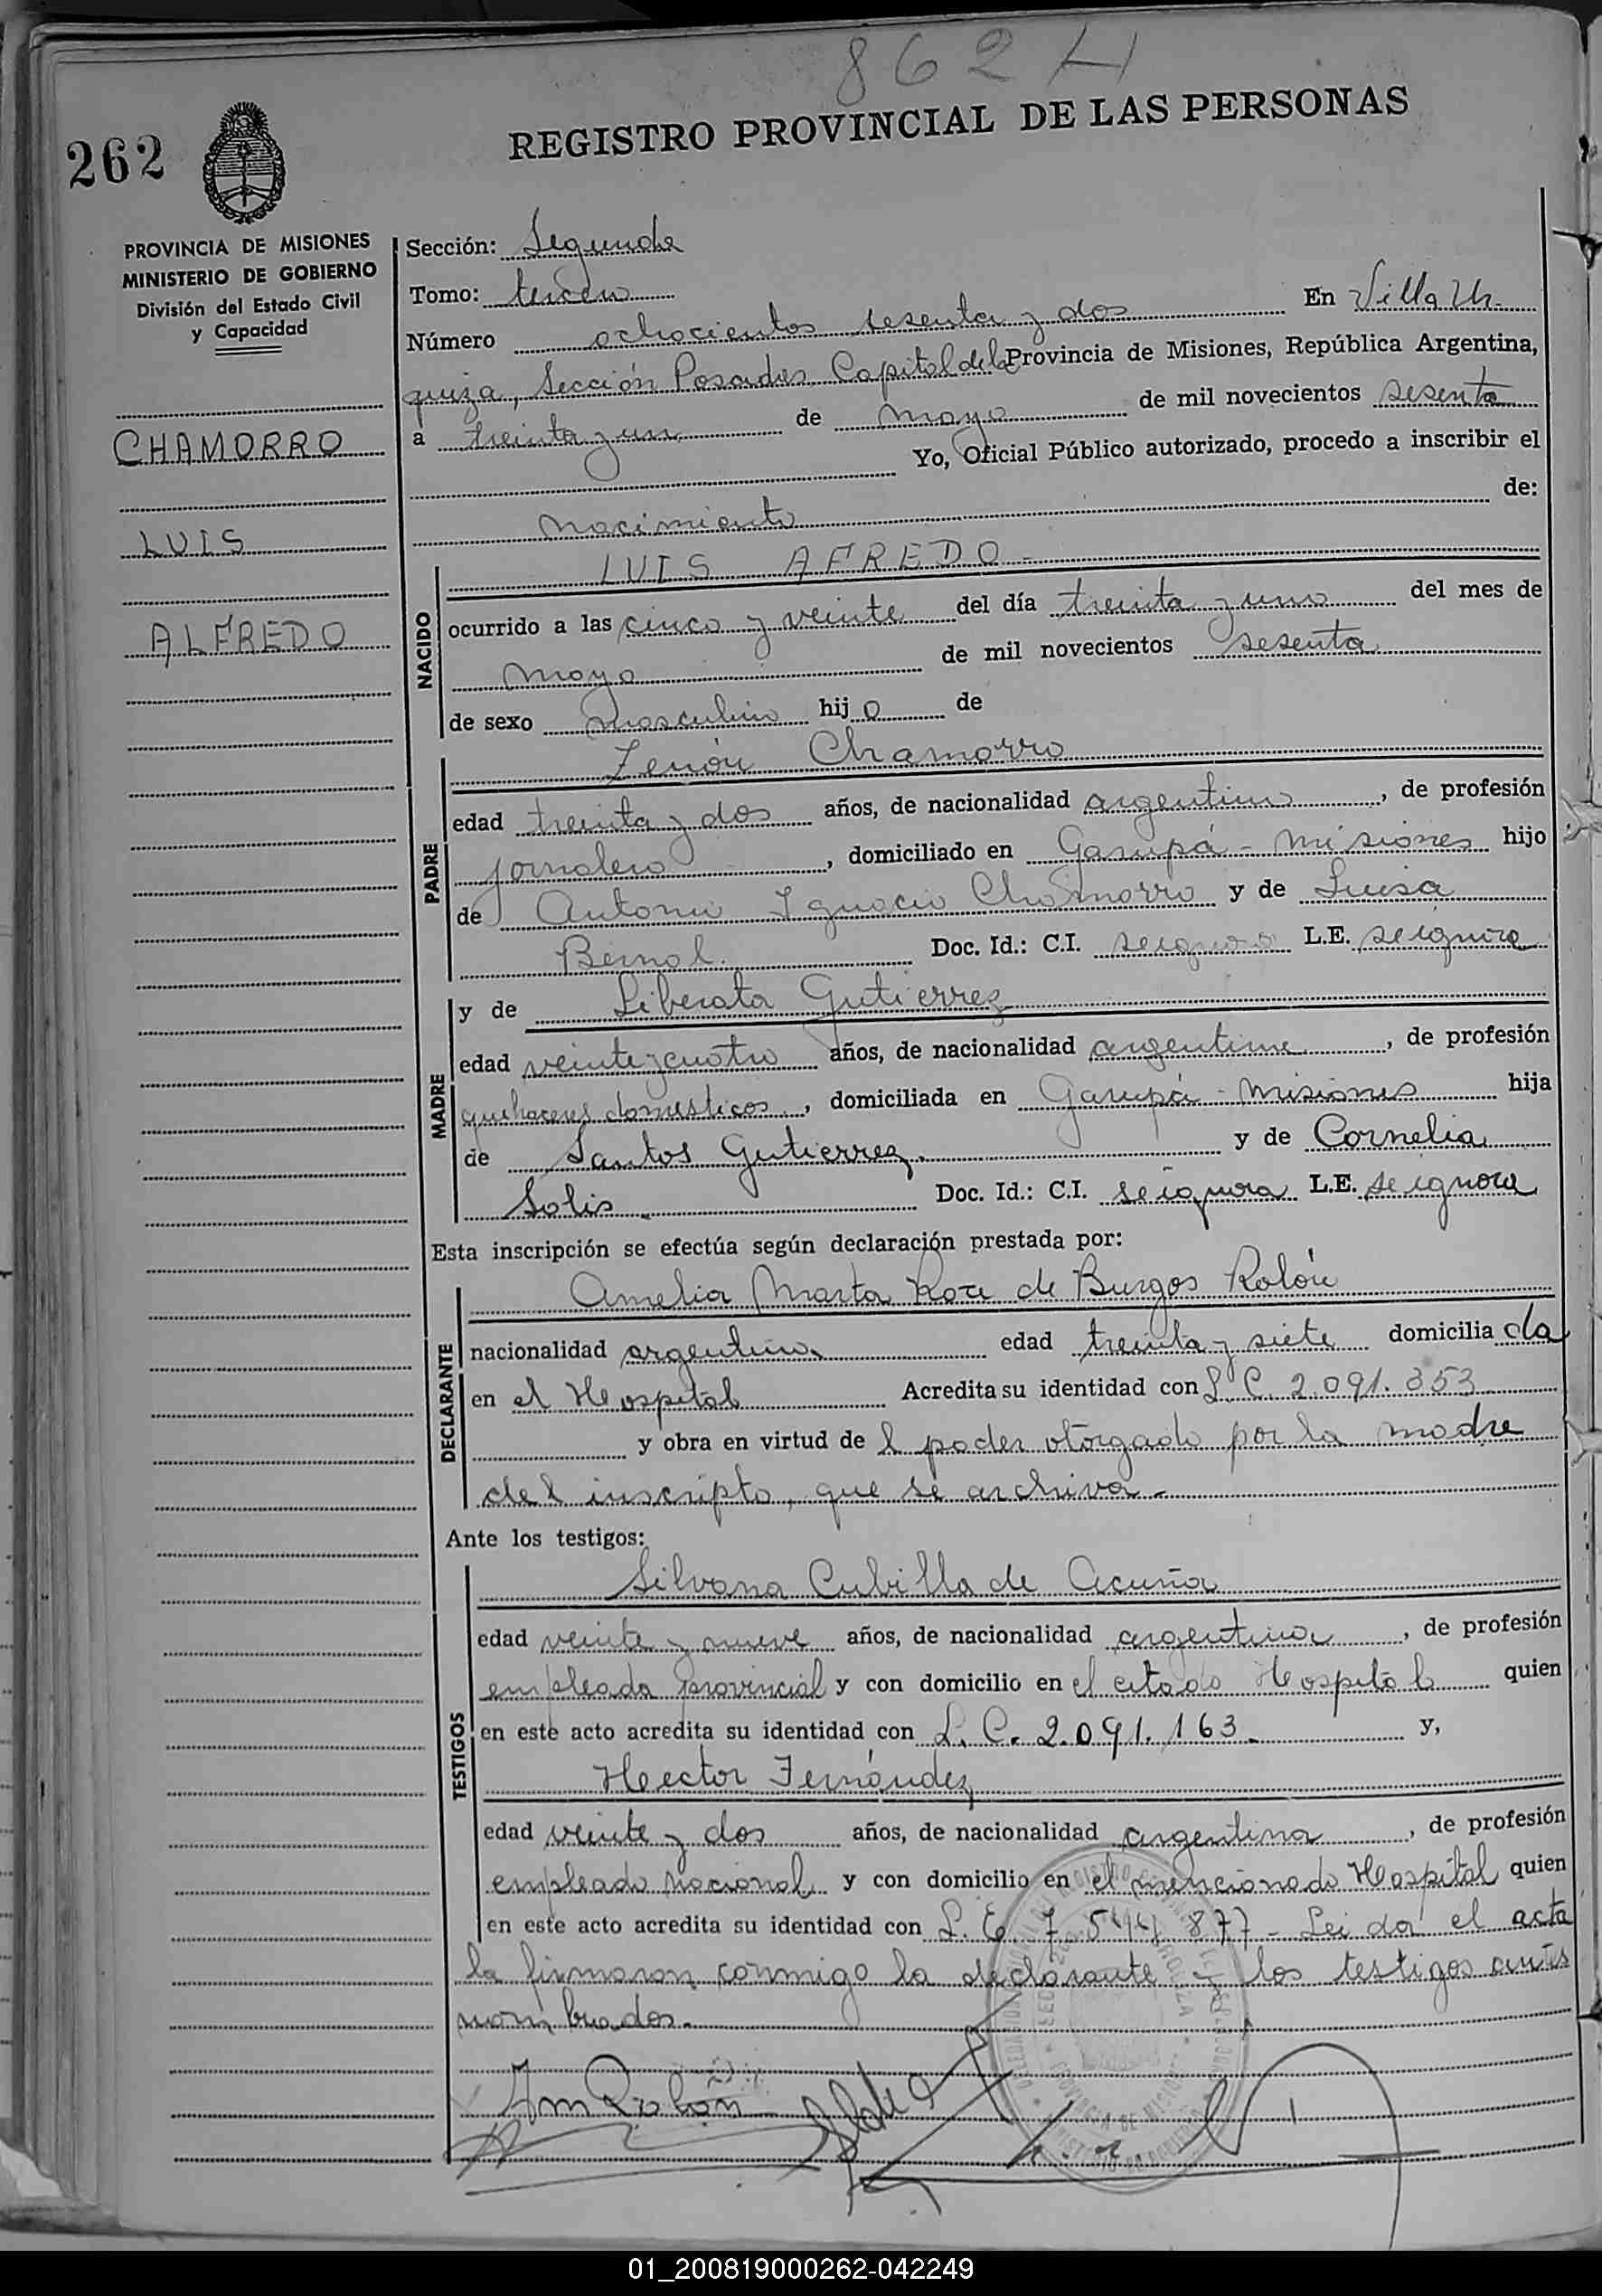 862 H
REGISTRO PROVINCIAL DE LAS PERSONAS
262
PROVINCIA DE MISIONES
MINISTERIO DE GOBIERNO
División del Estado Civil
y Capacidad
CHAMORRO
LUIS
ALFREDO
Sección: Segunda
Tomo: tercero
En Villa Ur-
Número ochocientos sesenta y dos
quiza, Sección Posadas Capital de la Provincia de Misiones, República Argentina,
a treinta y un de mayo de mil novecientos sesenta
Yo, Oficial Público autorizado, procedo a inscribir el
nacimiento de:
NACIDO
LUIS AFREDO -
ocurrido a las cinco y veinte del día treinta y uno del mes de
mayo de mil novecientos sesenta
de sexo masculino hijo de
PADRE
Zenón Chamorro
edad treinta y dos años, de nacionalidad argentino, de profesión
jornalero, domiciliado en Garupá - Misiones hijo
de Antonio Ignacio Chamorro y de Luisa
Bernal. Doc. Id.: C.I. se ignora L.E. se ignora
MADRE
y de Liberata Gutierrez
edad veinte y cuatro años, de nacionalidad argentina, de profesión
quehaceres domésticos, domiciliada en Garupá - Misiones hija
de Santos Gutierrez. y de Cornelia
Solis Doc. Id.: C.I. se ignora L.E. se ignora
Esta inscripción se efectúa según declaración prestada por:
DECLARANTE
Amelia Marta de Burgos Rolón
nacionalidad argentina edad treinta y siete domiciliada
en el Hospital Acredita su identidad con L. C. 2.091.353
y obra en virtud del poder otorgado por la madre
del inscripto, que se archiva -
Ante los testigos:
TESTIGOS
Silvana Cubilla de Acuña
edad veinte y nueve años, de nacionalidad argentina, de profesión
empleada provincial y con domicilio en el citado Hospital quien
en este acto acredita su identidad con L. C. 2.091.163 y,
Hector Fernández
edad veinte y dos años, de nacionalidad argentina, de profesión
empleado nacional y con domicilio en el mencionado Hospital quien
en este acto acredita su identidad con L. E. 7.544.877 - Leida el acta
la firmaron conmigo la declarante y los testigos antes
nombrados.
01_200819000262-042249